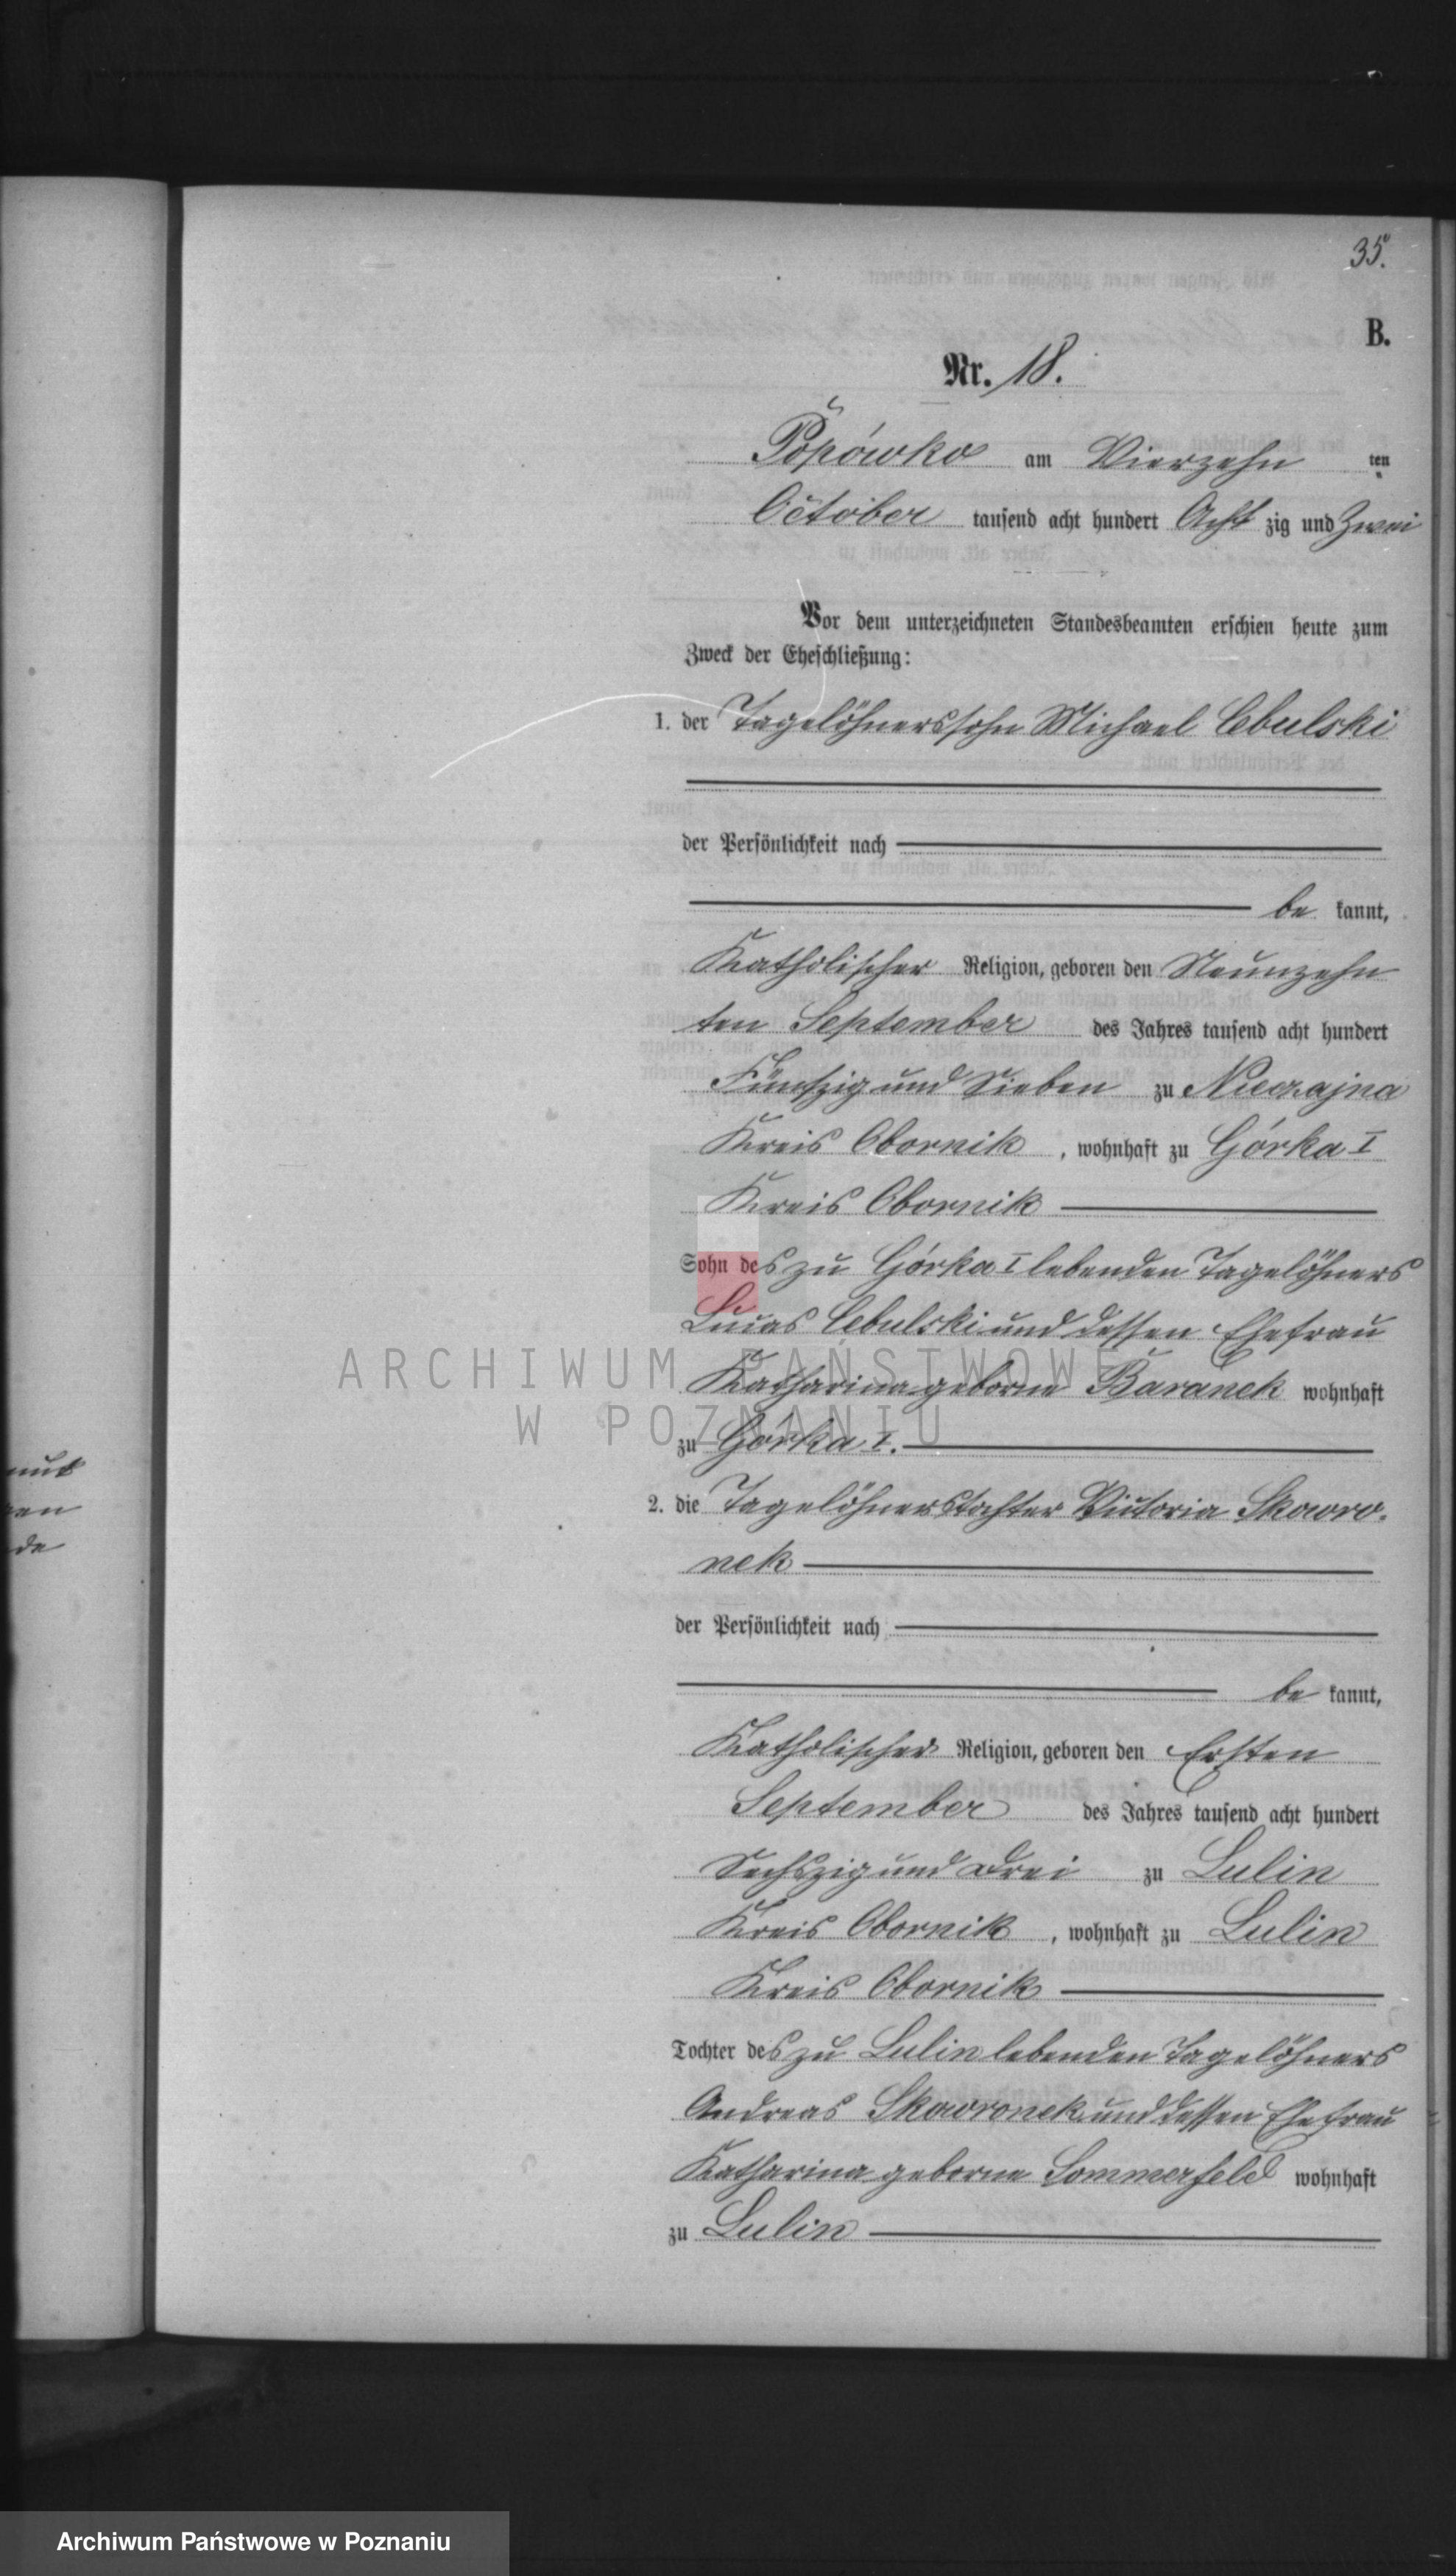 35.
B.
Nr. 18.
Popówko am Vierzehn ten
October tausend acht hundert Acht zig und Zwei
Vor dem unterzeichneten Standesbeamten erschien heute zum
Zweck der Eheschließung:
1. der Tagelöhnerssohn Michael Cebulski
der Persönlichkeit nach
be kannt,
Katholischer Religion, geboren den Neunzehn
ten September des Jahres tausend acht hundert
Fünfzig und Sieben zu Nieczajna
Kreis Obornik, wohnhaft zu Górka I
Kreis Obornik
Sohn des zu Górka I lebenden Tagelöhners
Lucas Cebulski und dessen Ehefrau
Katharina geborne Baranek wohnhaft
zu Górka I.
2. die Tagelöhnerstochter Victoria Skowro-
nek
der Persönlichkeit nach
be kannt,
Katholischer Religion, geboren den Ersten
September des Jahres tausend acht hundert
Sechszig und Drei zu Lulin
Kreis Obornik, wohnhaft zu Lulin
Kreis Obornik
Tochter des zu Lulin lebenden Tagelöhners
Andreas Skowronek und dessen Ehefrau
Katharina geborne Sommerfeld wohnhaft
zu Lulin
ARCHIWUM PAŃSTWOWE
W POZNANIU
Archiwum Państwowe w Poznaniu